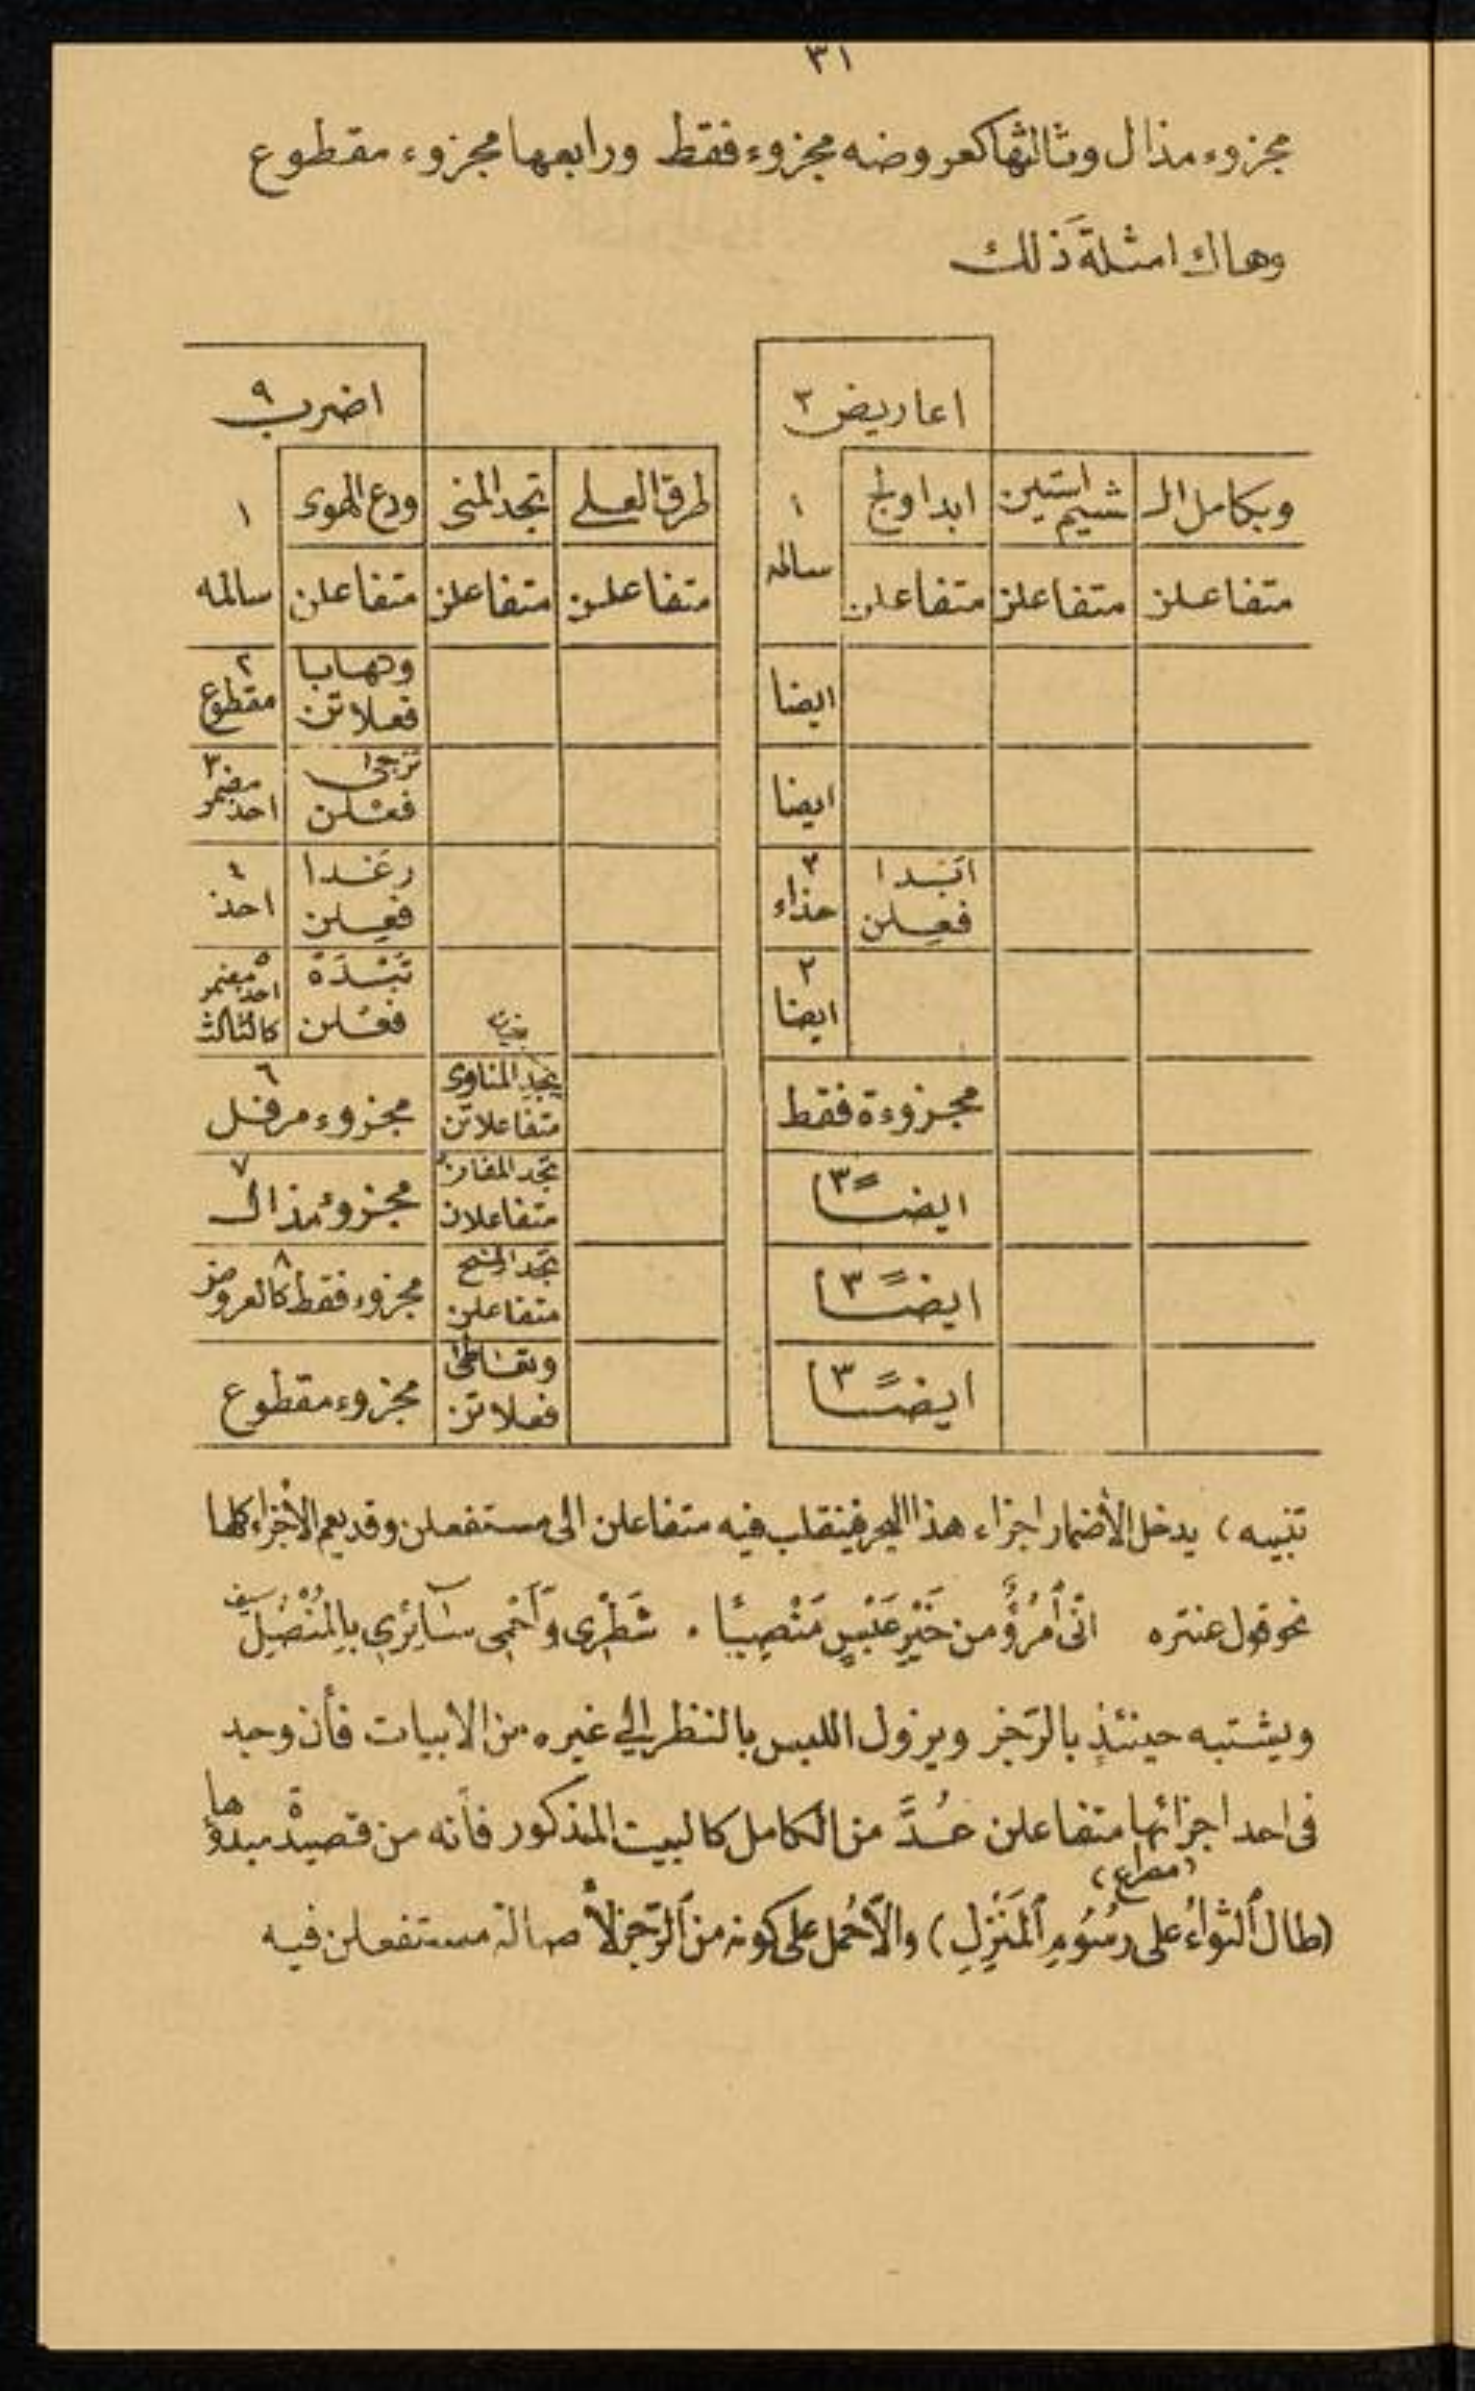 ٣١
مجزوء مذال وثالثها كعروضه مجزوء فقط ورابعها مجزوء مقطوع
وهاك امثلة ذلك
اعاريض ٣
اضرب ٩
وبكامل الـ شيم استبن ابدا ولج ١ طرق العلى تجد المنى ودع الهوى ١
متفاعلن متفاعلن متفاعلن سالمه متفاعلن متفاعلن متفاعلن سالمه
ايضا وتهابا فعلاتن ٢ مقطوع
ايضا ترجى فعْلن ٣ احذ مضمر
ابدا فعِلن ٢ حذاء رغدا فعِلن ٤ احذ
٢ ايضا فعْلن ٥ احذ مضمر كالثالث
مجزوءة فقط متفاعلاتن ٦ مجزوء مرفل
ايضًا ٣ متفاعلان ٧ مجزوء مذال
ايضًا ٣ متفاعلن ٨ مجزوء فقط كالعروض
ايضًا ٣ فعلاتن مجزوء مقطوع
تنبيه ) يدخل الأضمار اجزاء هذا البحر فينقلب فيه متفاعلن الى مستفعلن وقد يعم الأجزاء كلها
نحو قول عنتره انّى ٱمْرُؤٌ من خَيْرِ عَبْسٍ مَنْصِبًا . شَطْرِى وَأَحْمِى سَآئِرِي بِالْمُنْصُلِ
سيف
ويشتبه حينئذٍ بالرّجز ويزول اللبس بالنظر الى غيره من الابيات فأن وجد
فى احد اجزائها متفاعلن عُدَّ من الكامل كالبيت المذكور فأنه من قصيدة مبدؤها
(مصراع)
(طال ٱلثواءُ على رسُومِ ٱلمَنْزِلِ) والّا حُمل على كونه من ٱلرّجز لأصالة مستفعلن فيه